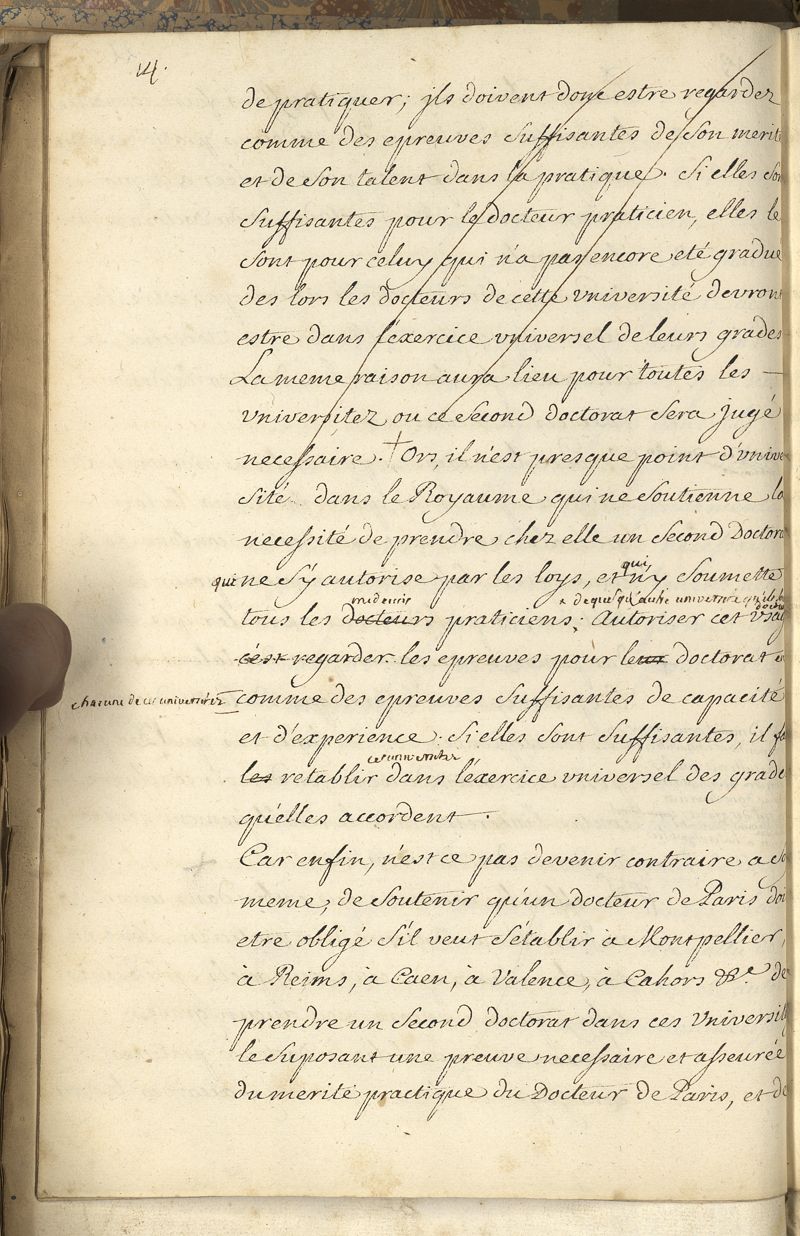 14.
de pratiquer; jls doivent donc estre regardez
comme des epreuves suffisantes de son merite
et de son talent dans la pratique. Si elles son
suffisantes pour le docteur praticien, elles le
sont pour celuy qui n'a pas encore eté gradue
des lors les docteurs de cette vniversité devront
estre dans l'éxercice vniversel de leurs grades
La meme raison aura lieu pour toutes les —
vniversitez ou ce second doctorat sera jugé
necessaire. † Ors, il n'est presque point d'vnive
sité dans le Royaume qui ne soutienne la
necessité de prendre chez elle un second Doctora
qui ne s'y autorise par les loys, et qui n'y soumette
medecins
tous les docteurs praticiens; Autoriser cet vsag
c'est regarder les epreuves pour leur doctorat
chacune de ces universitez
comme des epreuves suffisantes de capacité
et d'experience. Si elles sont suffisantes, il fa
ces universitez
les retablir dans l'éxercice vniversel des grade
qu'elles accordent.
Car enfin, n'est ce pas devenir contraire a so
meme, de soutenir qu'un docteur de Paris doi
etre obligé s'il veut s'établir à Montpellier,
à Reims, à Caen, à Valence, à Cahors &c. de
prendre un second doctorat dans ces vniversit
le suposant une preuve necessaire et asseurée
du merite practique du Docteur de Paris, et de